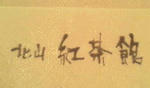 北山 紅茶館